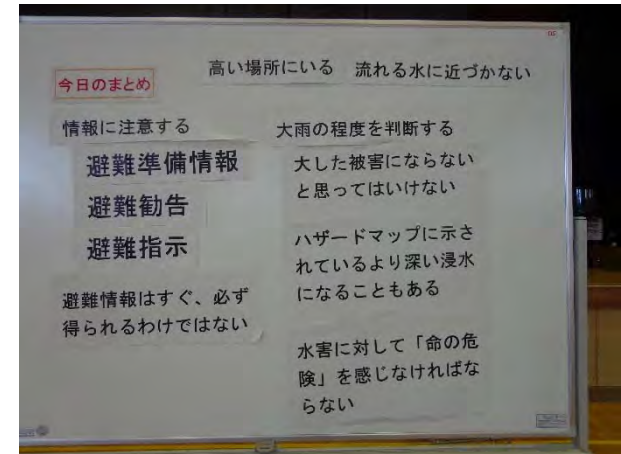 今日のまとめ
高い場所にいる 流れる水に近づかない
情報に注意する
避難準備情報
避難勧告
避難指示
避難情報はすぐ、必ず
得られるわけではない
大雨の程度を判断する
大した被害にならない
と思ってはいけない
ハザードマップに示さ
れているより深い浸水
になることもある
水害に対して「命の危
険」を感じなければな
らない